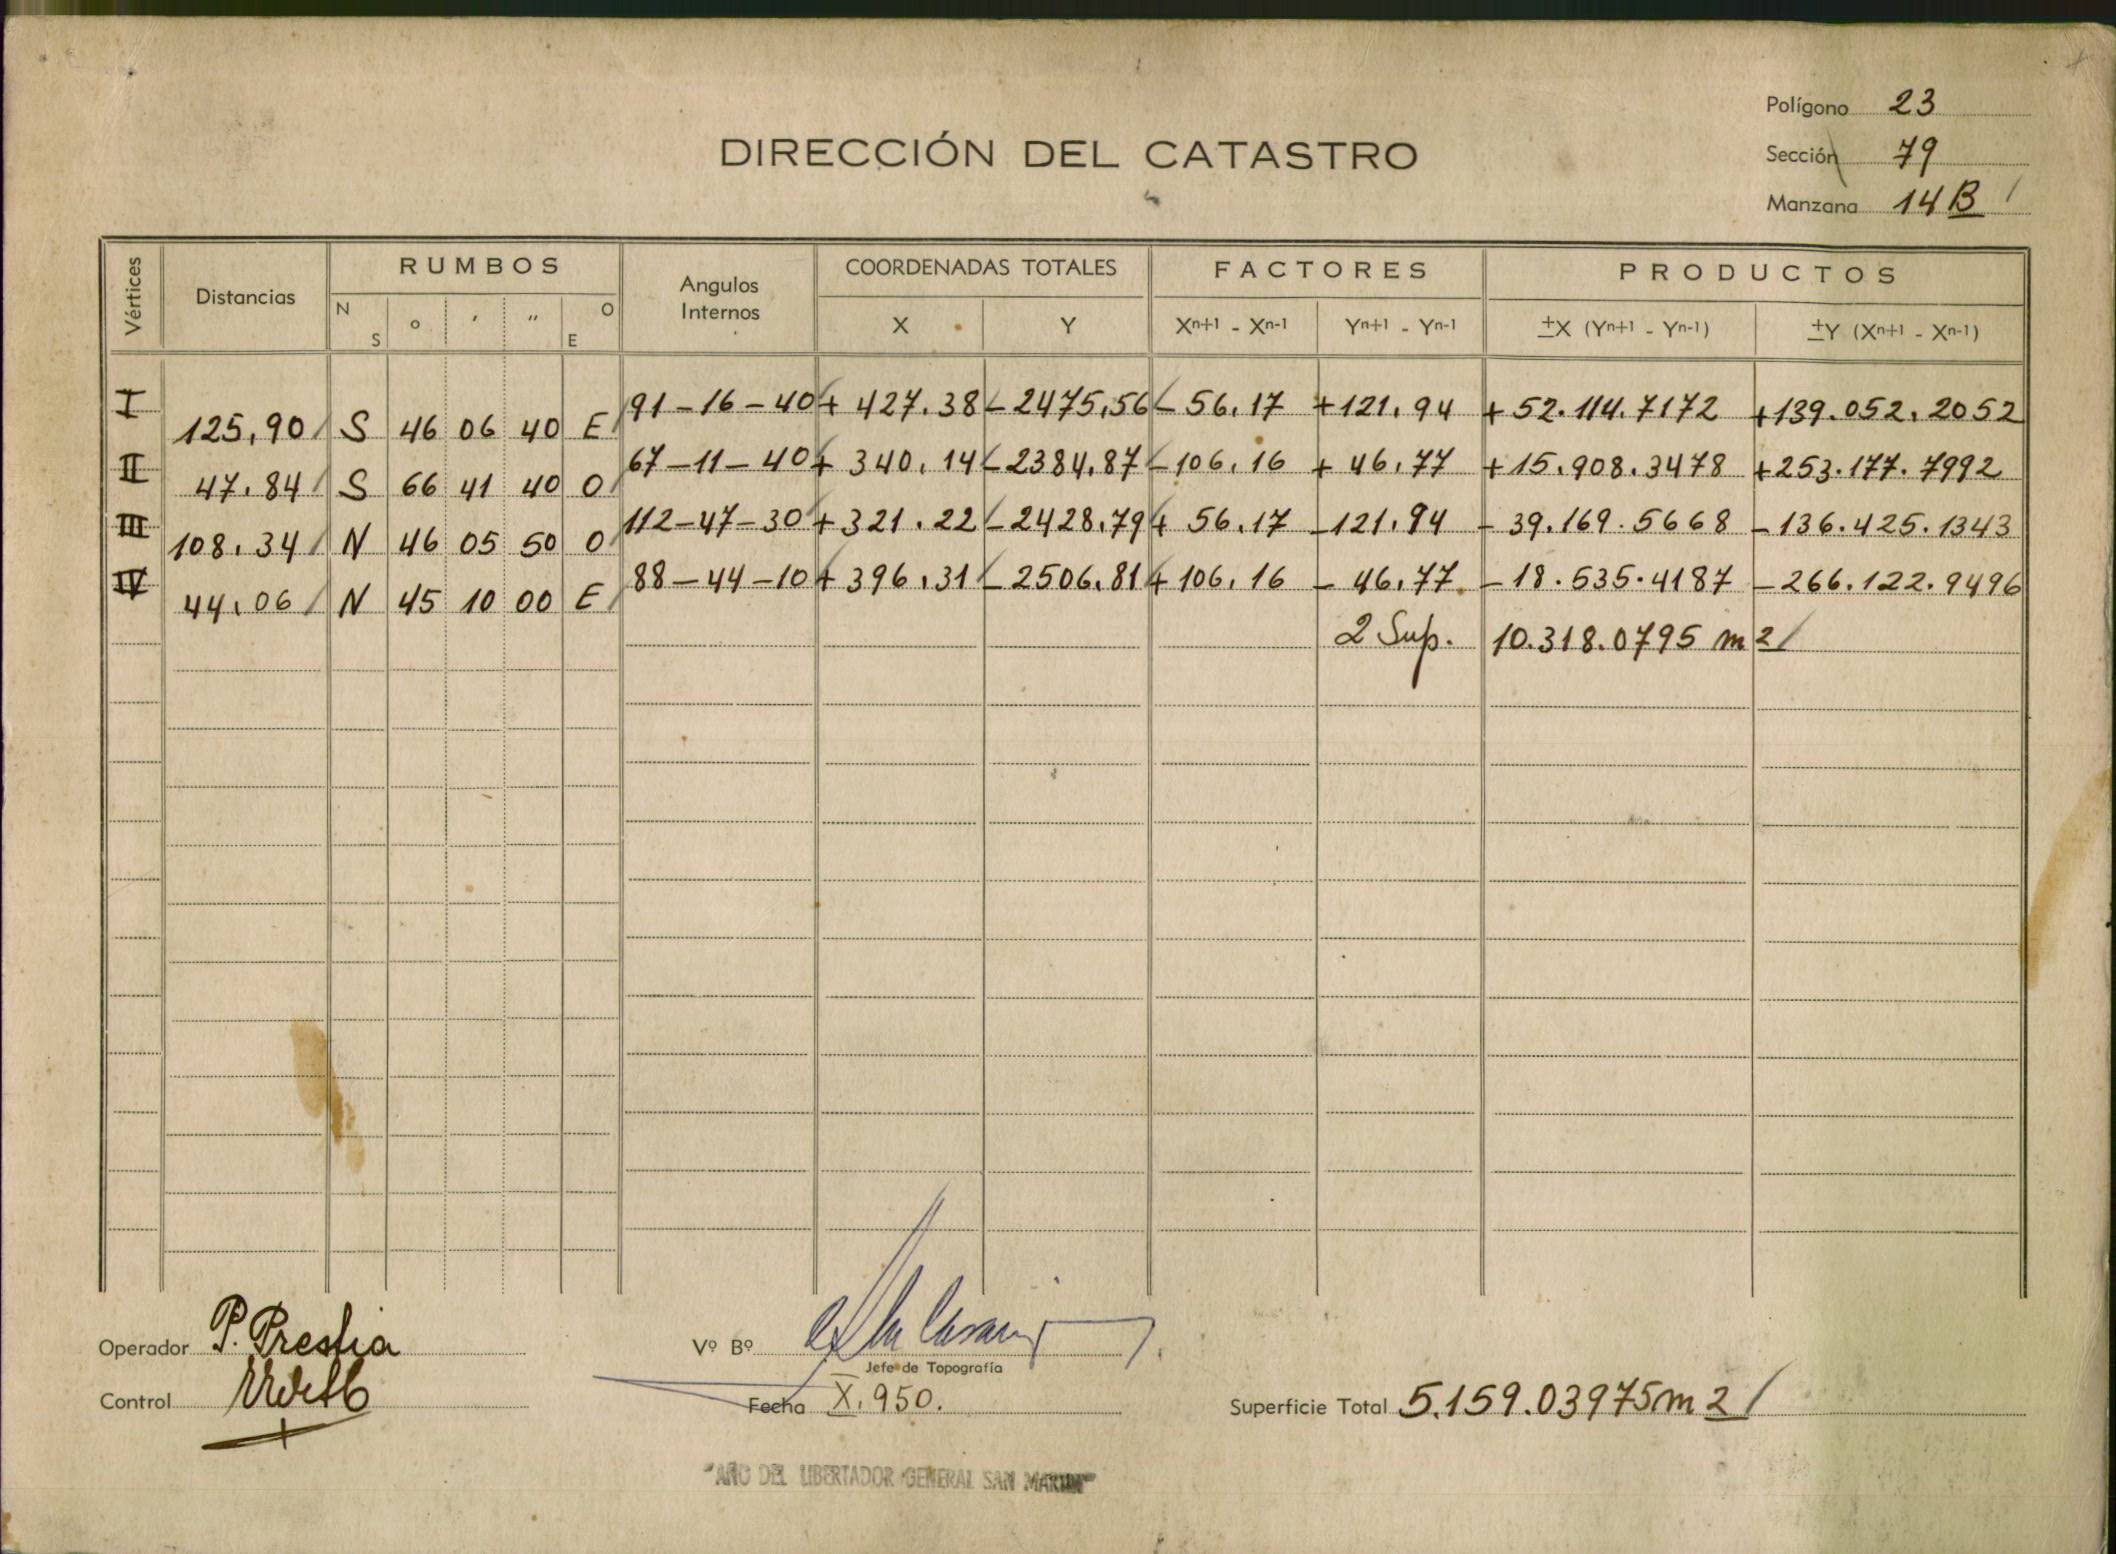 Polígono 23
DIRECCIÓN DEL CATASTRO
Sección 79
Manzana 14 B
Vértices Distancias RUMBOS Angulos Internos COORDENADAS TOTALES FACTORES PRODUCTOS
N S ° ' " O E X Y Xn+1 - Xn-1 Yn+1 - Yn-1 ±X (Yn+1 - Yn-1) ±Y (Xn+1 - Xn-1)
I 91-16-40 + 427.38 - 2475,56 - 56.17 +121.94 + 52.114.7172 +139.052.2052
125,90 S 46 06 40 E
II 67-11-40 + 340.14 - 2384,87 - 106.16 + 46.77 + 15.908.3478 +253.177.7992
47.84 S 66 41 40 O
III 112-47-30 + 321.22 - 2428,79 + 56.17 - 121.94 - 39.169.5668 - 136.425.1343
108.34 N 46 05 50 O
IV 88-44-10 + 396.31 - 2506.81 + 106.16 - 46.77 - 18.535.4187 - 266.122.9496
44.06 N 45 10 00 E
2 Sup. 10.318.0795 m2
Operador P. Prestia
Vº Bº
Jefe de Topografía
Control
Fecha X.950.
Superficie Total 5.159.03975 m2
"AÑO DEL LIBERTADOR GENERAL SAN MARTIN"